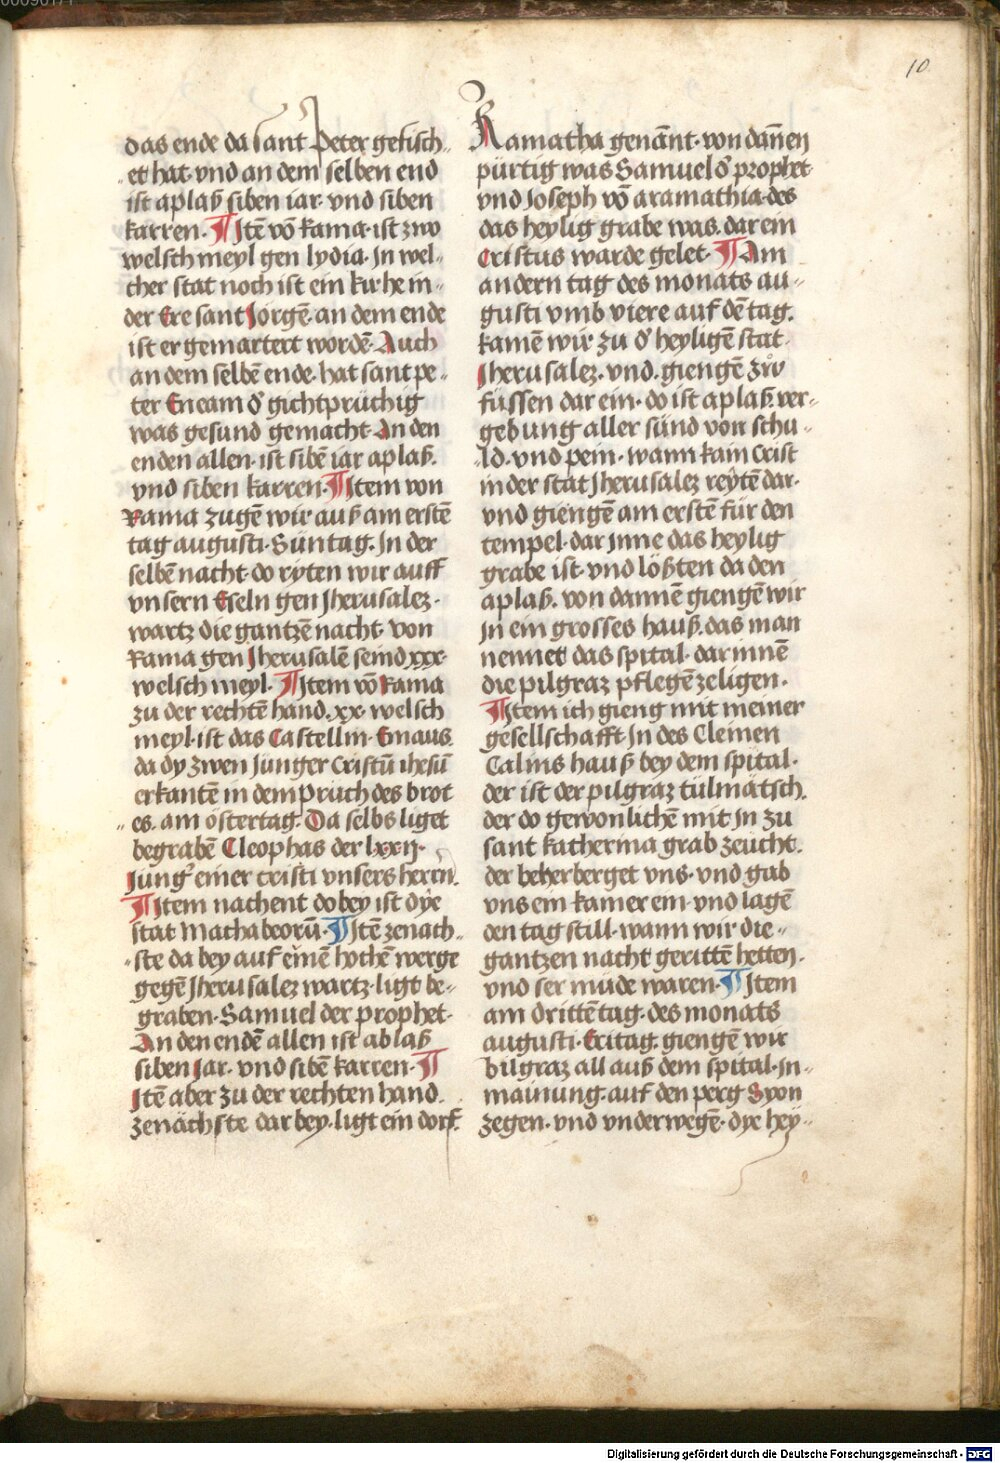 10
das ende da sant Peter gefisch-
et hat· vnd an dem selben end
ist aplaß siben iar· vnd siben
karren· Itē vō Rama· ist zwo
welsch meyl gen lydia· In wel-
cher stat noch ist ein kirche in
der Ere sant Jorgē· an dem ende
ist er gemartert wordē· Auch
an dem selbē ende· hat sant pe-
ter Eneam d' gichtprüchig
was gesund gemacht· An den
enden allen· ist sibē iar aplaß.
vnd siben karren· Item von
Rama zugē wir auß am erstē
tag augusti· Suntag· In der
selbē nacht· do ryten wir auff
vnsern Eseln gen Jherusalez·
wartz die gantzē nacht· von
Rama gen Jherusalē seind xxx·
welsch meyl· Item vō Rama
zu der rechtē hand· xx· welsch
meyl· ist das Castellin· Emaus.
da dy zwen Junger Cristū ihesū
erkantē in dem pruch des brot
es. am ostertag· Da selbs liget
begrabē Cleophas der lxxij·
Jung' einer cristi vnsers herrn.
Item nachent do bey ist dye
stat Machabeorū· Itē zenach-
ste da bey auf einē hochē werge
gegē Jherusalez wartz· ligt be-
graben· Samuel der prophet·
An den endē allen ist ablaß
siben Jar· vnd sibē karren·
Itē aber zu der rechten hand.
zenächste dar bey· ligt ein dorf.
Ramatha genānt· von dan̄en
pürtig was Samuel d' prophet·
vnd Joseph vō aramathia· des
das heylig grabe was. dar ein
Cristus warde gelet· Am
andern tag des monats au-
gusti vmb viere auf dē tag.
kamē wir zu d' heyligē stat·
Jherusalez· vnd· giengē zů
füssen dar ein· do ist aplaß· ver-
gebung aller sünd von schu-
ld· vnd pein· wann kain Crist
in der stat Jherusalez reytē dar·
vnd giengē am erstē für den
tempel· dar Inne das heylig
grabe ist· vnd lößten da den
aplaß. von dannē giengē wir
In ein grosses hauß· das man
nennet das spital· dar innē
die pilgraz pflegē zeligen·
Item ich gieng mit meiner
gesellschafft In des Cleinen
Calins hauß bey dem spital·
der ist der pilgraz tülmätsch.
der do gewonlichē mit In zu
sant katherina grab zeücht.
der beherberget vns· vnd gab
vns ein kamer ein· vnd lagē
den tag still· wann wir die-
gantzen nacht gerittē hetten·
vnd ser müde waren· Item
am drittē tag· des monats
augusti· Eritag· giengē wir
bilgraz all auß dem spital· In-
mainung· auf den perg Syon
zegen· vnd vnderwegē· dye hey-
Digitalisierung gefördert durch die Deutsche Forschungsgemeinschaft - DFG